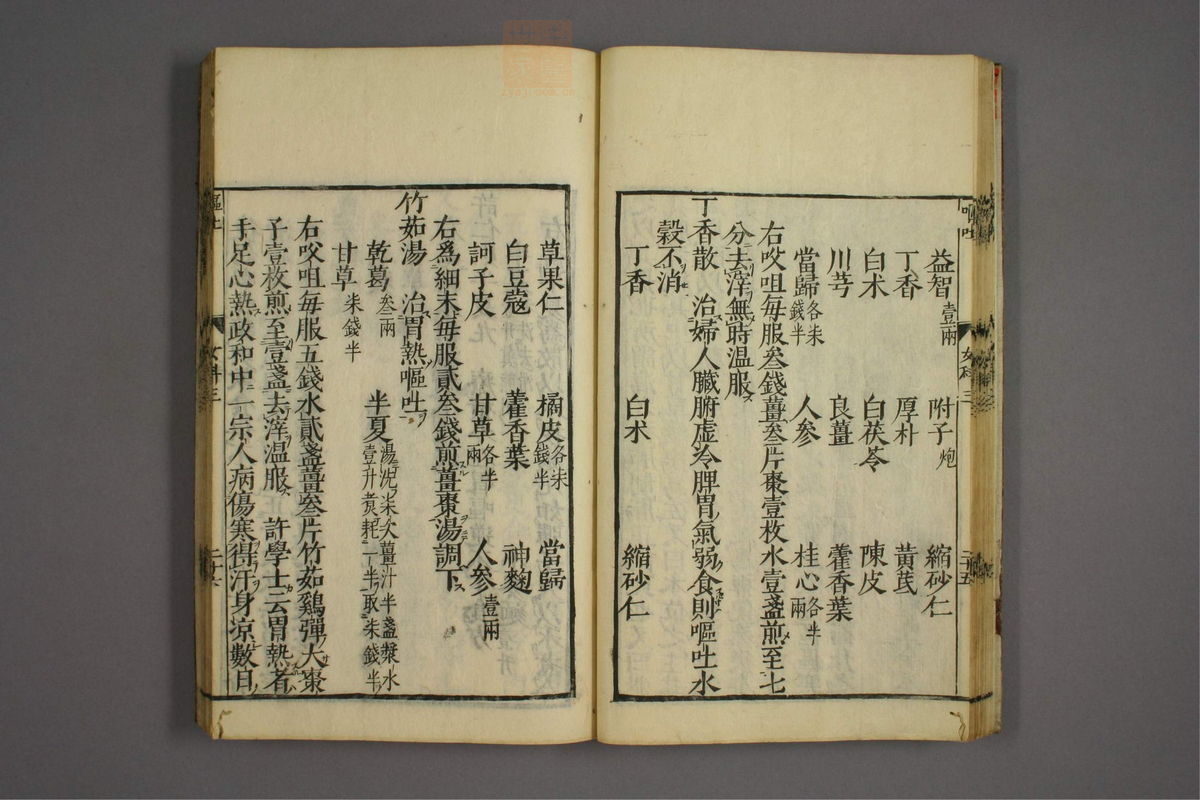 益智壹兩 附子炮 縮砂仁
丁香 厚朴 黃芪
白朮 白茯苓 陳皮
川芎 良薑 藿香葉
當歸各柒錢半 人參 桂心各半兩
右㕮咀每服叁錢薑叁片棗壹枚水壹盞煎至七
分去滓無時温服
丁香散 治婦人臟腑虛冷脾胃氣弱食則嘔吐水
穀不消
丁香 白朮 縮砂仁
草果仁 橘皮各柒錢半 當歸
白豆蔻 藿香葉 神麴
訶子皮 甘草各半兩 人參壹兩
右爲細末每服貳叁錢煎薑棗湯調下
竹茹湯 治胃熱嘔吐
乾葛叁兩 半夏湯洗柒次薑汁半盞漿水壹升煮耗一半取柒錢半
甘草柒錢半
右㕮咀每服五錢水貳盞薑叁片竹茹鷄彈大棗
子壹枚煎至壹盞去滓温服 許學士云胃熱者
手足心熱政和中一宗人病傷寒得汗身凉數日
嘔吐
女科三
二十五
嘔吐
女科三
二十六